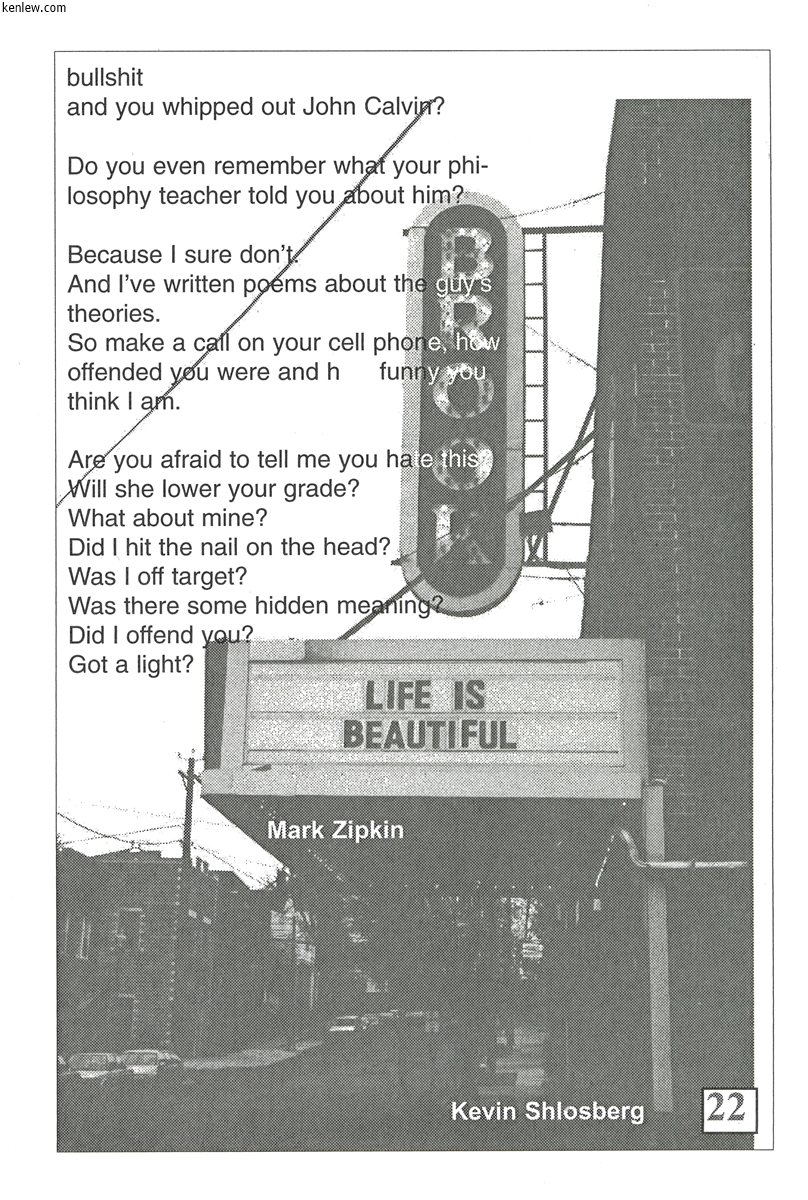 kenlew.com
bullshit
and you whipped out John Calvin?
Do you even remember what your phi-
losophy teacher told you about him?
Because I sure don't.
And I've written poems about the guy's
theories.
So make a call on your cell phone, how
offended you were and h funny you
think I am.
Are you afraid to tell me you hate this?
Will she lower your grade?
What about mine?
Did I hit the nail on the head?
Was I off target?
Was there some hidden meaning?
Did I offend you?
Got a light?
BROOK
LIFE IS
BEAUTIFUL
Mark Zipkin
Kevin Shlosberg
22